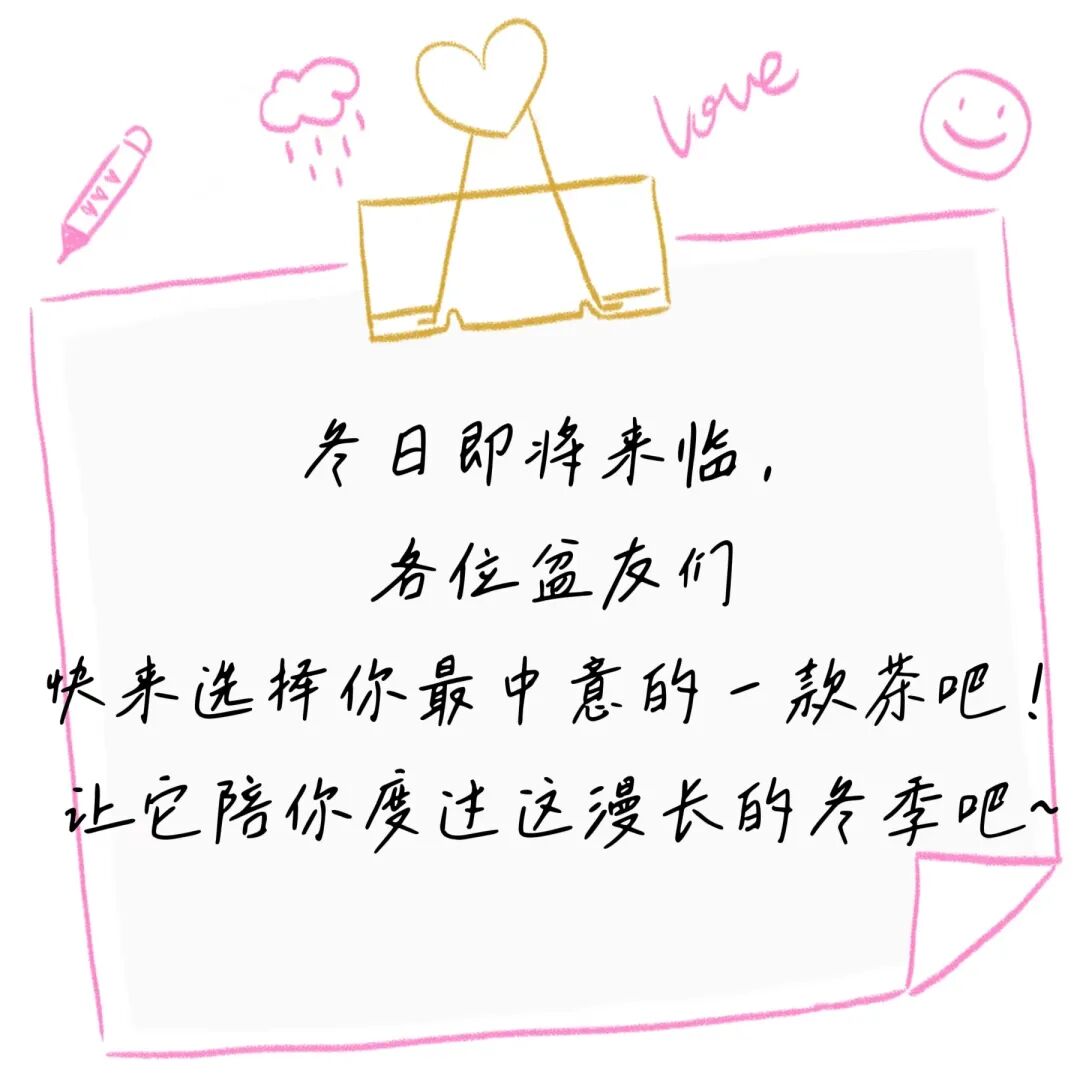 Love
冬日即将来临，
各位盆友们
快来选择你最中意的一款茶吧！
让它陪你度过这漫长的冬季吧~